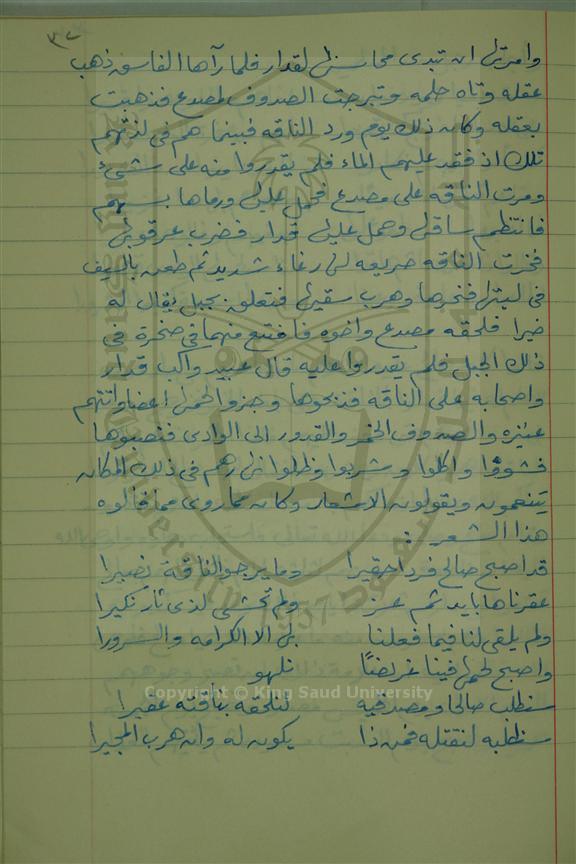 ٣٧
وامرتها ان تبدى محاسنها لقدار فلما رآها الفاسق ذهب
عقله وتاه حلمه وتبرجت الصدوف لمصدع فذهبت
بعقله وكان ذلك يوم ورد الناقه فبينما هم فى لذتهم
تلك اذ فقد عليهم الماء فلم يقدروا منه على شىء
ومرت الناقه على مصدع فحمل عليها ورماها بسهم
فانتظم ساقها وحمل عليها قدار فضرب عرقوبها
فخرت الناقه صريعه لها رغاء شديد ثم طعن بالسيف
فى لبتها فنحرها وهرب سقيها فتعلق بجبل يقال له
ضيرا فلحقه مصدع واخوه فامتنع منهما فى صخرة فى
ذلك الجبل فلم يقدروا عليه قال عبيد واكب قدار
واصحابه على الناقه فذبحوها وجزوا لحمها اعضا واتتهم
عنيزه والصدوف الخمر والقدور الى الوادى فنصبوها
فشووا واكلوا وشربوا وظلوا نهارهم فى ذلك المكان
يتنعمون ويقولون الاشعار وكان مما روى مما قالوه
هذا الشعر :
قد اصبح صالح فردا حقيرا وما يرجو الناقة نصيرا
عقرناها بايد ثم عز ولم تخشى لذى ثار نكيرا
ولم يلقى لنا فيما فعلنا بها الا الكرامه والسرورا
واصبح لحمها فينا غريضا نلهو
سنطلب صالحا ومصدقيه لنلحقه بناقته عقيرا
سنطلبه لنقتله فمن ذا يكون له وان هرب المجيرا
Copyright © King Saud University